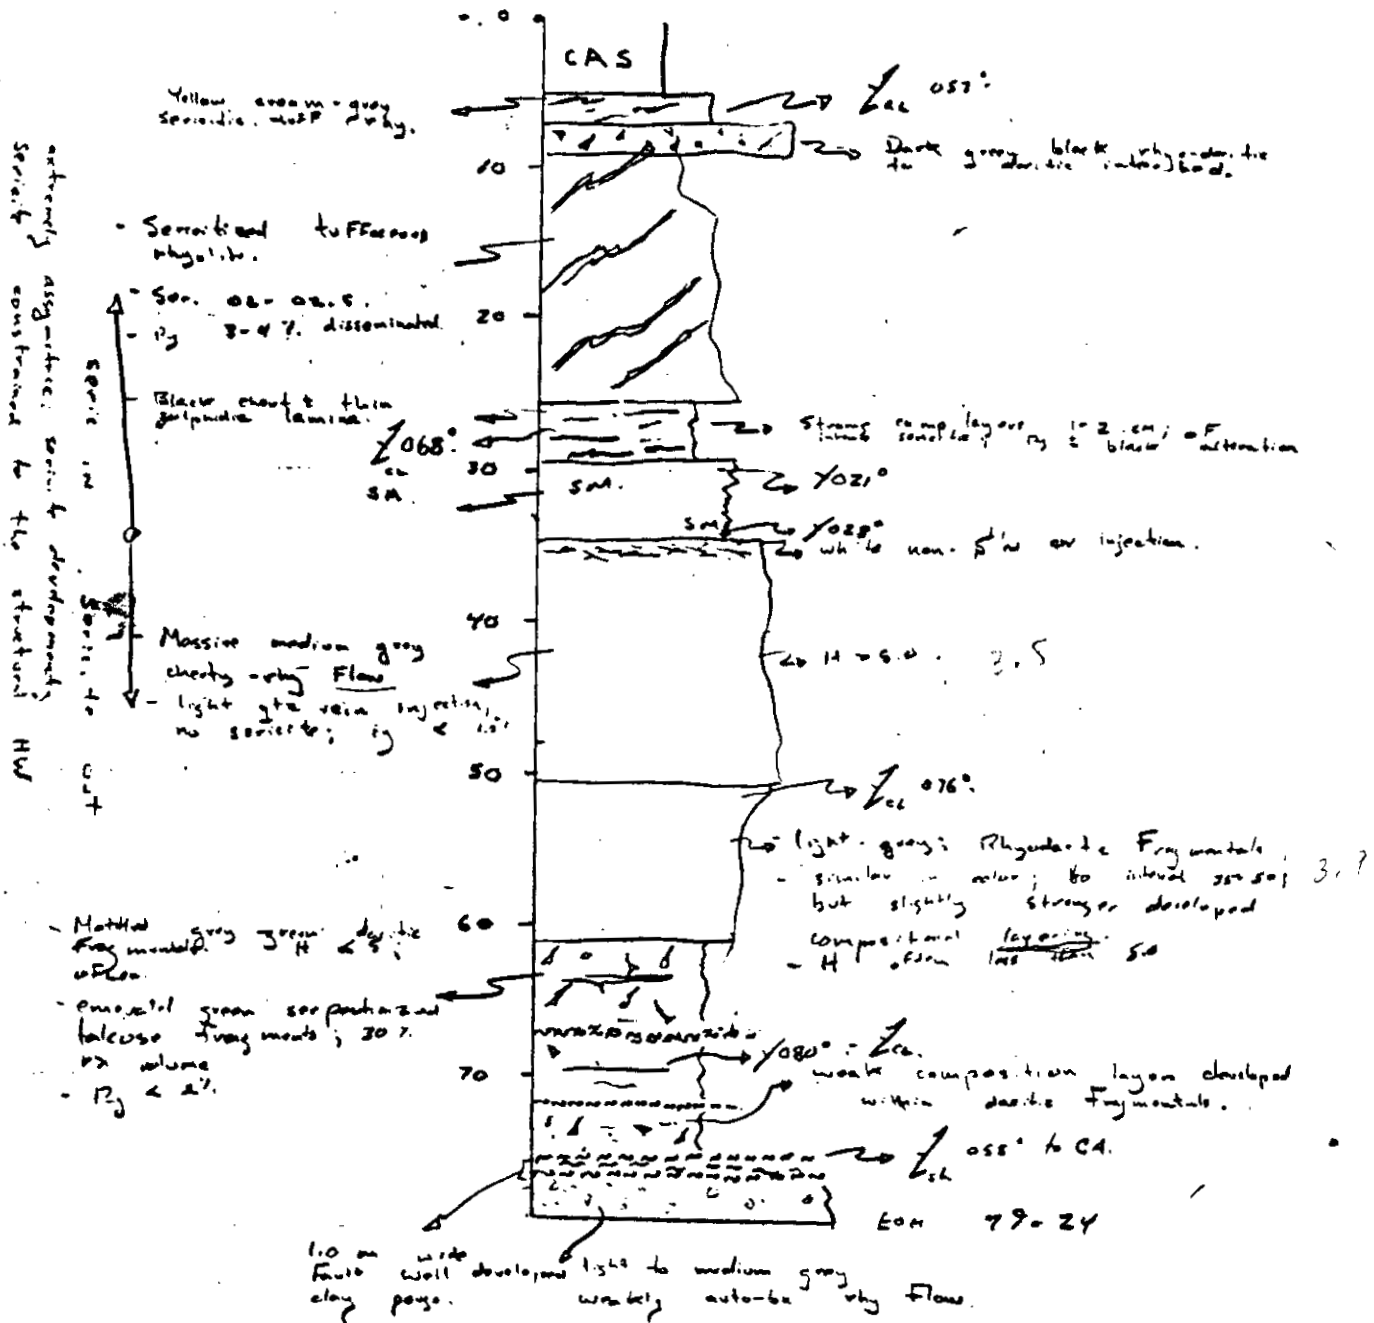 0
CAS
Yellow cream-grey
sericitic tuff rhy.
057°
10
Dark grey black rhyo-dacitic
to dacitic interbed.
- Sericitized tuffaceous
rhyolite.
- Ser. 02-02.5.
- Py 3-4% disseminated
20
- Black chert & thin
sulphidic lamina.
068°
ca
SM
Strong comp layers 1-2 cm; of
sericite; Py & black alteration
30
SM.
021°
SM
028°
white non- injection.
40
- Massive medium grey
cherty-rhy Flow
- light qtz vein injection;
no sericite; py <
H > 5.0.
3.5
50
ca 076°
- light-grey; Rhyodacite Fragmentals
- similar in color; to interval 35-50;
but slightly stronger developed
compositional layering.
- H often less than 5.0
60
- Mottled grey green dacitic
Fragmentals. H < 5;
often.
- emerald green serpentinized
talcose fragments; 30%
rx volume
- Py < 2%
70
080° - ca.
weak composition layers developed
within dacitic Fragmentals.
sh 055° to CA.
EOH 79.24
1.0 cm wide
Fault well developed
clay gouge.
light to medium grey
weakly auto-bx rhy Flow.
seric in
seric. to out
extremely assymetric; sericite development;
sericite constrained to the structural HW